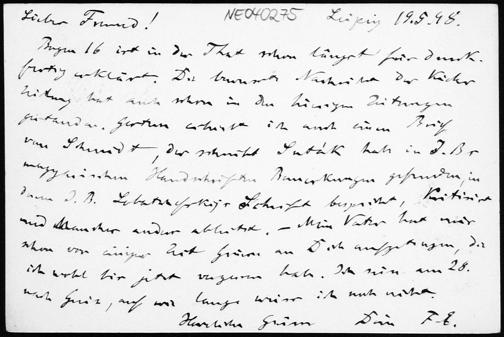 Lieber Freund! NE040275 Leipzig 19.5.98.
Bogen 16 ist in der That schon längst für druck-
fertig erklärt. Die bewusste Nachricht der
zeitung hat auch schon in den hiesigen Zeitungen
gestanden. Gestern erhielt ich auch einen Brief
von Schmidt, der schreibt Suták hab in J. B.s
magyarischen Handschriften Bemerkungen gefunden, in
denen J. B. Lobatschefskijs Schrift bespricht, kritisirt
und Mancher anders ableitet. – Mein Vater hat mir
schon vor einiger Zeit Grüsse an Dich aufgetragen, die
ich wohl bis jetzt vergessen habe. Ich am 28.
nach Greiz, auf wie lange weiss ich noch nicht.
Herzliche Grüsse Dein F. E.